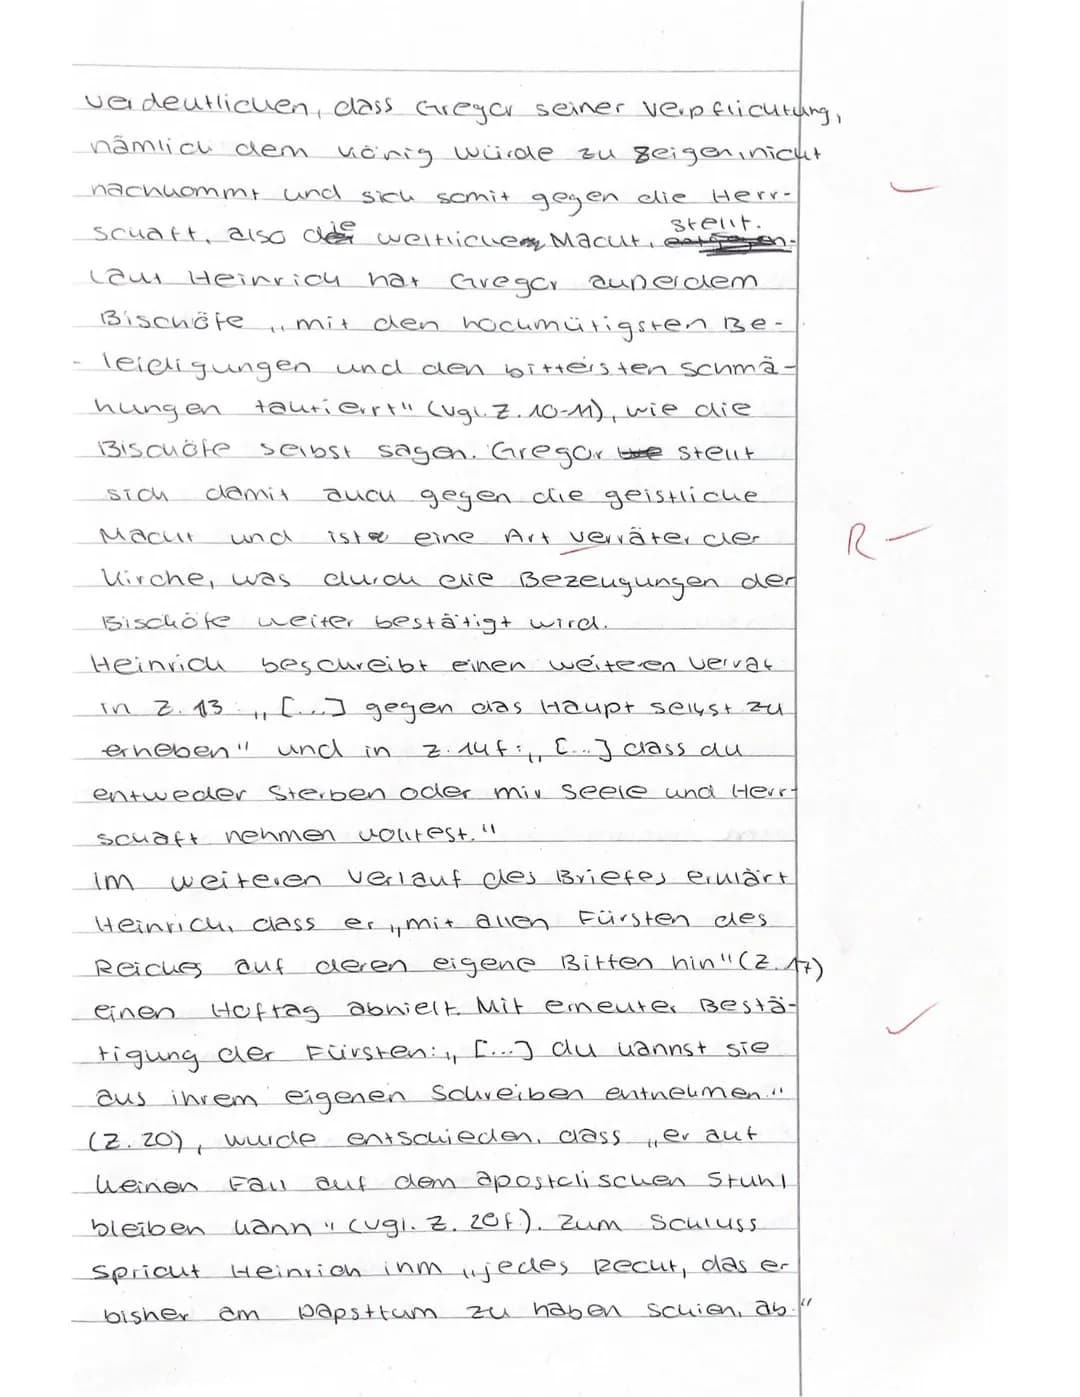 verdeutlichen, dass Gregor seiner Verpflichtung,
nämlich dem König Würde zu zeigen, nicht
nachkommt und sich somit gegen die Herr-
schaft, also die weltliche Macht, stellt.
Laut Heinrich hat Gregor außerdem
Bischöfe „mit den hochmütigsten Be-
leidigungen und den bittersten Schmä-
hungen taktiert" (vgl. Z. 10-11), wie die
Bischöfe selbst sagen. Gregor stellt
sich damit auch gegen die geistliche
Macht und ist eine Art verräter der
R-
Kirche, was durch die Bezeugungen der
Bischöfe weiter bestätigt wird.
Heinrich beschreibt einen weiteren Verrat
in Z. 13: „[...] gegen das Haupt selbst zu
erheben" und in Z. 14f: „[...] dass du
entweder Sterben oder mir Seele und Herr-
schaft nehmen wolltest."
Im weiteren Verlauf des Briefes erklärt
Heinrich, dass er „mit allen Fürsten des
Reiches auf deren eigene Bitten hin" (Z. 17)
einen Hoftag abhielt. Mit erneuter Bestä-
tigung der Fürsten: „[...] du kannst sie
aus ihrem eigenen Schreiben entnehmen."
(Z. 20), wurde entschieden, dass „er auf
keinen Fall auf dem apostolischen Stuhl
bleiben kann" (vgl. Z. 20f). Zum Schluss
Spricht Heinrich ihm „jedes Recht, das er
bisher am Papsttum zu haben schien, ab."